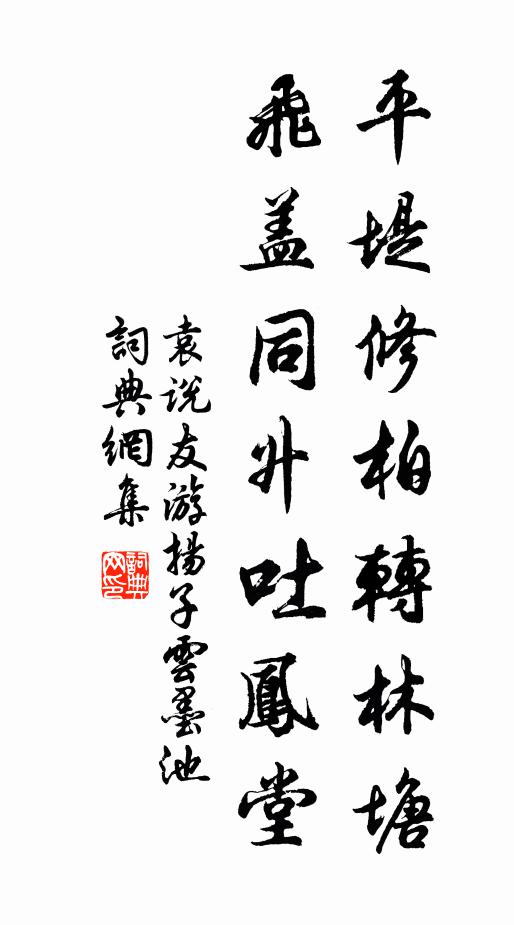 平堤修柏轉林塘
飛盖同升吐鳳堂
袁说友游揚子雲墨池
詞典網集
詞典网印